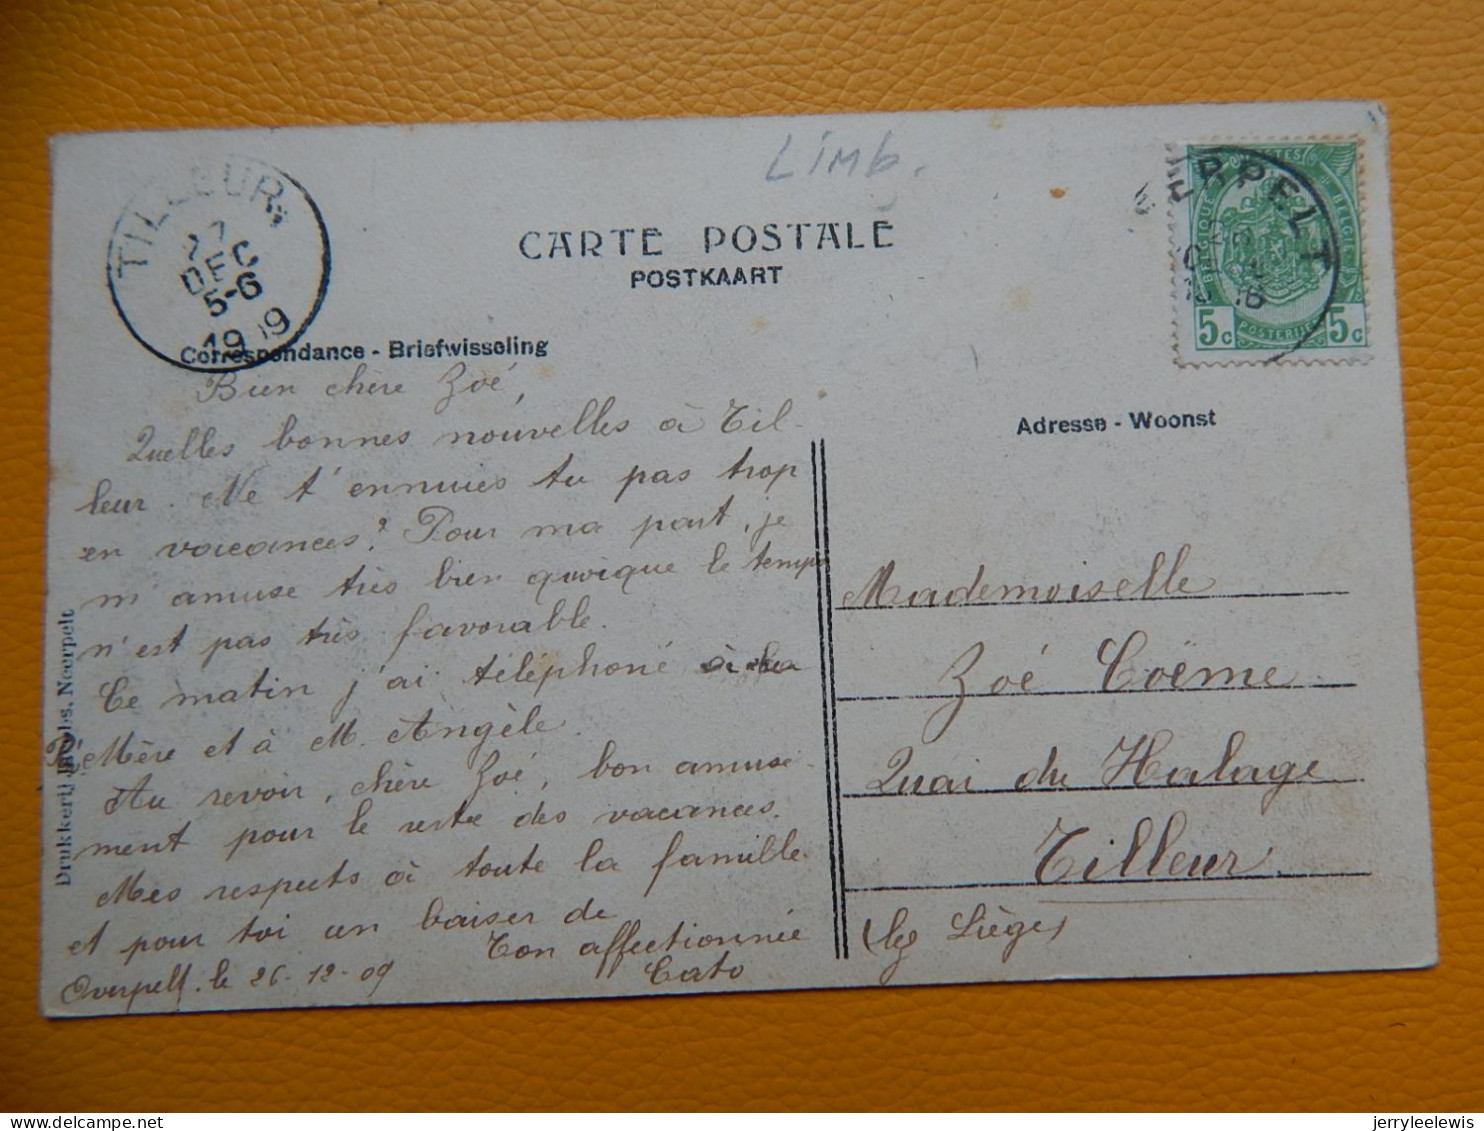 Limb.
TILLEUR
27
DEC
5-6
1909
CARTE POSTALE
POSTKAART
EERPELT
BELGIQUE
BELGIE
5c POSTERIJEN 5c
Correspondance - Briefwisseling
Adresse - Woonst
Bien chère Zoé,
Quelles bonnes nouvelles à Til-
leur. Ne t'ennuies tu pas trop
en vacances? Pour ma part, je
m'amuse très bien quoique le temps
n'est pas très favorable.
Ce matin j'ai téléphoné à la
Rde Mère et à M. Angèle.
Au revoir, chère Zoé, bon amuse-
ment pour le reste des vacances.
Mes respects à toute la famille
et pour toi un baiser de
Ton affectionnée
Cato
Overpelt. le 26-12-09
Mademoiselle
Zoé Coëme
Quai du Halage
Tilleur
(lg Liège)
Drukkerij Jacobs, Neerpelt
jerryleelewis